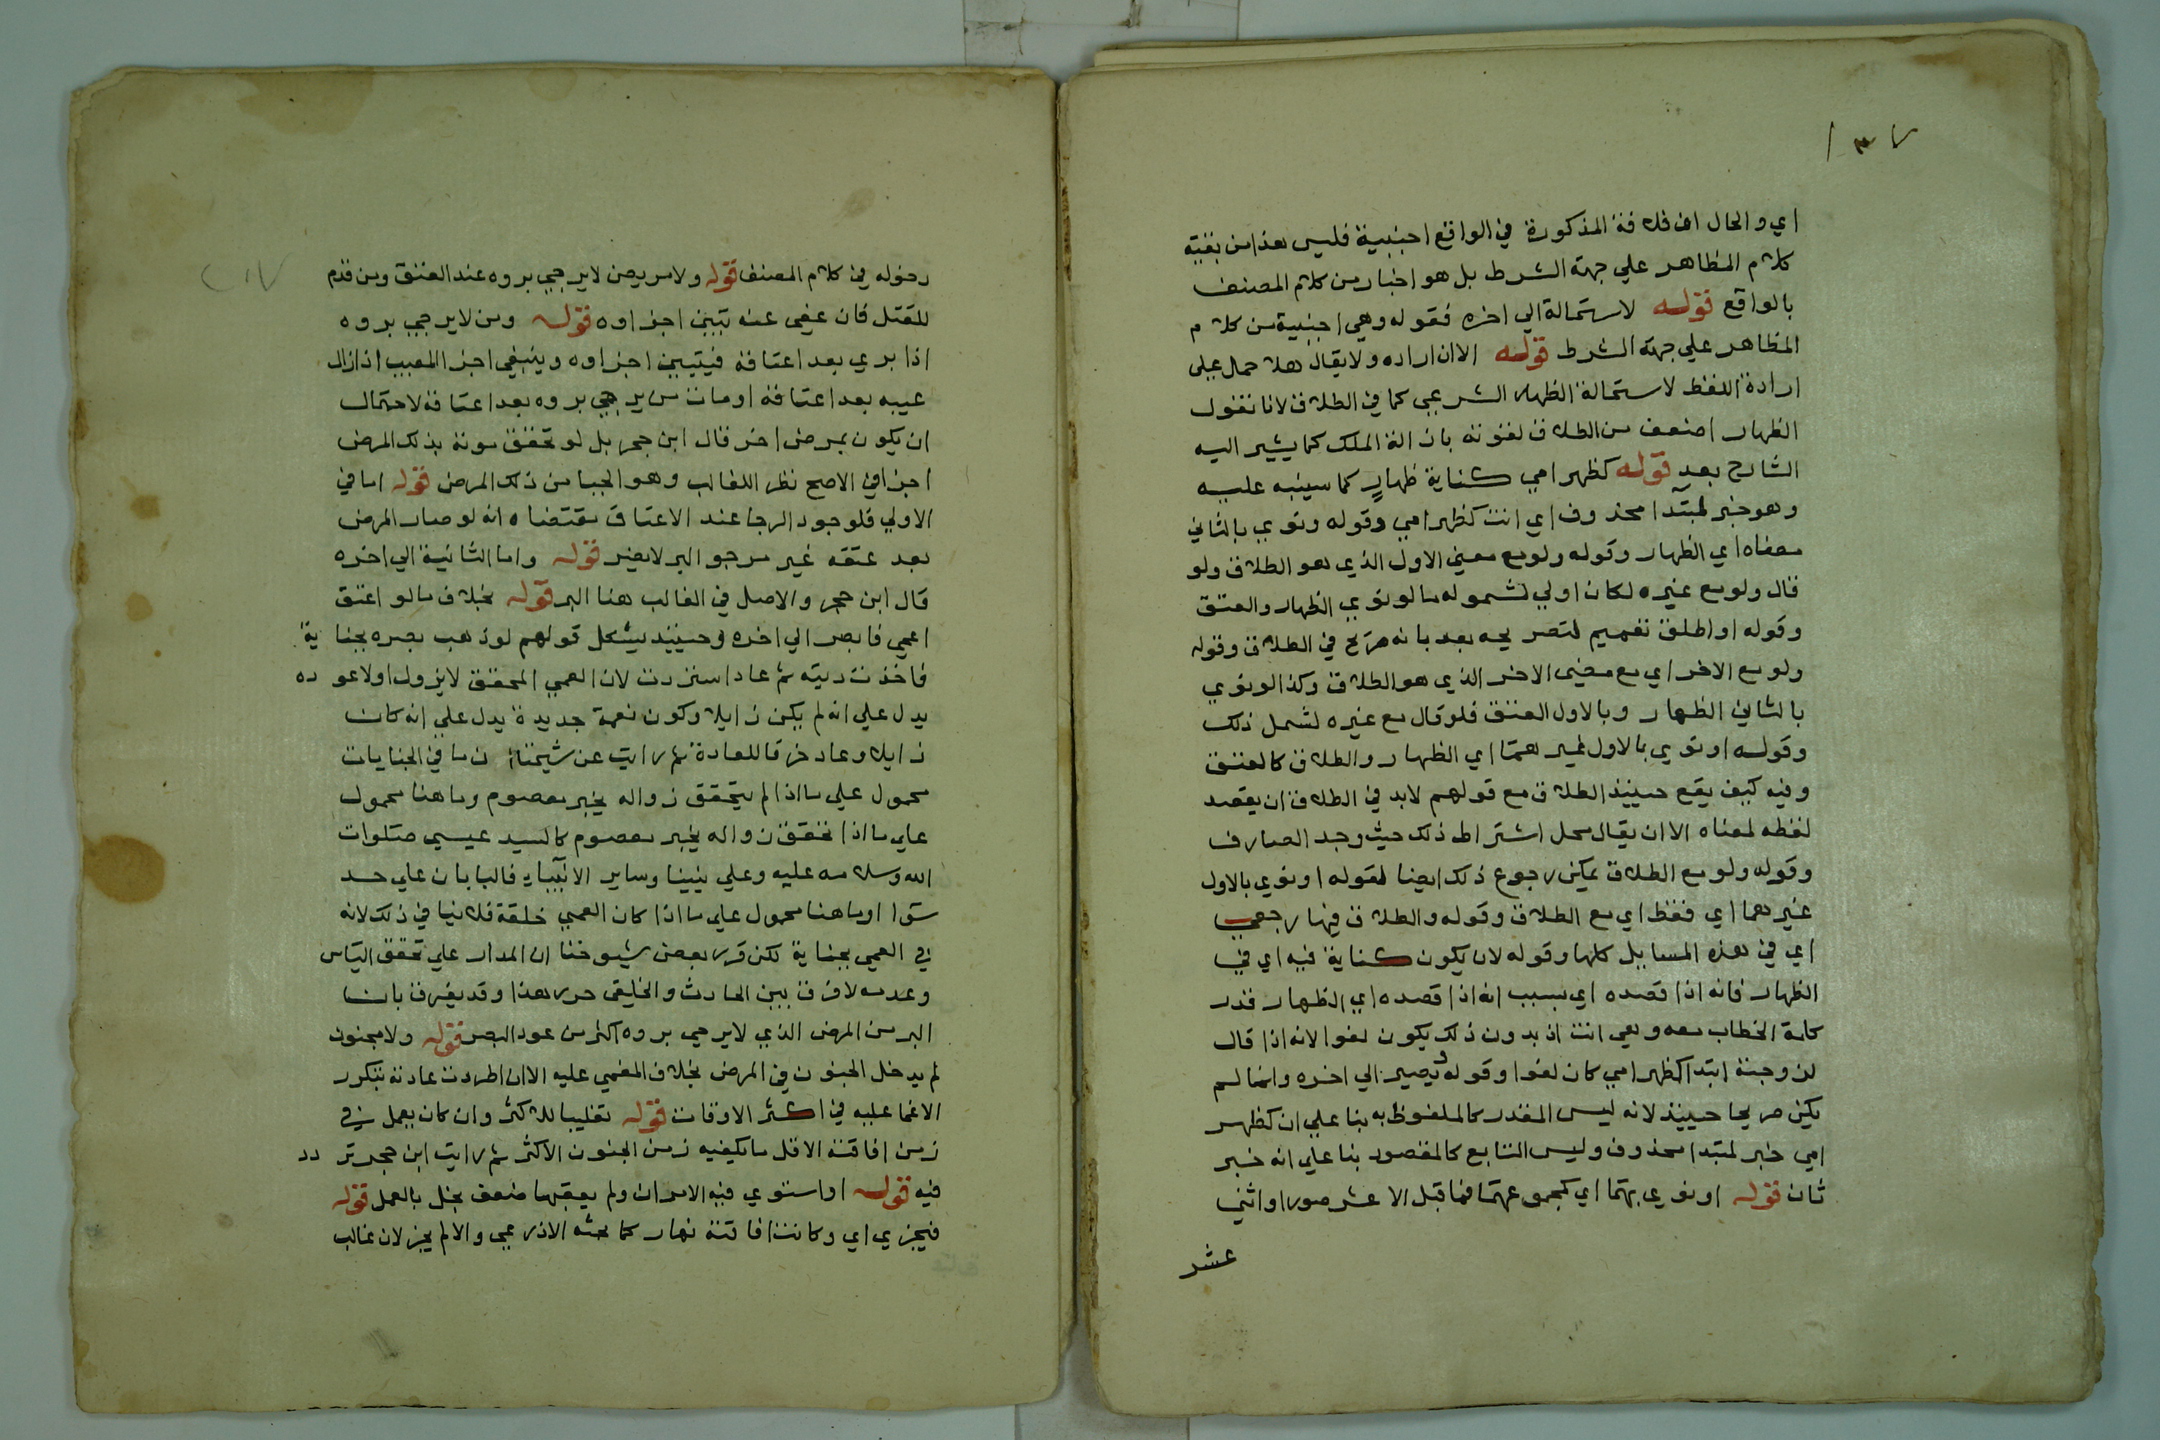 ١٣٧
اي والحال ان فلانة المذكورة في الواقع اجنبية فليس هذا من بقية
كلام المظاهر علي جهة الشرط بل هو اخبار من كلام المصنف
بالواقع قوله لاستحالة الي اخره فقوله وهي اجنبية من كلام
المظاهر علي جهة الشرط قوله الا ان اراده ولا يقال هلا حمل علي
ارادة اللفظ لاستحالة الظهار الشرعي كما في الطلاق لانا نقول
الظهار اضعف من الطلاق لقوته بازالة الملك كما يشير اليه
الشارح بعد قوله كظهر امي كناية ظهار كما سينبه عليه
وهو خبر لمبتدا محذوف اي انت كظهر امي وقوله ونوي بالثاني
معناه اي الظهار وقوله ولو مع معني الاول الذي هو الطلاق ولو
قال ولو مع غيره لكان اولي لشموله ما لو نوي الظهار والعتق
وقوله او اطلق تعميم لتصريحه بعد بانه صريح في الطلاق وقوله
ولو مع الاخر اي مع معني الاخر الذي هو الطلاق وكذا لو نوي
بالثاني الظهار وبالاول العتق فلو قال مع غيره لشمل ذلك
وقوله او نوي بالاول غيرهما اي الظهار والطلاق كالعتق
وفيه كيف يقع حينئذ الطلاق مع قولهم لابد في الطلاق ان يقصد
لفظه لمعناه الا ان يقال محل اشتراط ذلك حيث وجد الصارف
وقوله ولو مع الطلاق يمكن رجوع ذلك ايضا لقوله او نوي بالاول
غيرهما اي فقط اي مع الطلاق وقوله والطلاق فيها رجعي
اي في هذه المسايل كلها وقوله لان يكون كناية فيه اي في
الظهار فانه اذا قصده اي بسبب انه اذا قصده اي الظهار قدر
كلمة الخطاب معه وهي انت اذ بدون ذلك يكون لغوا لانه اذا قال
لزوجته ابتدا كظهر امي كان لغوا وقوله ويصير الي اخره وانما لم
يكن صريحا حينئذ لانه ليس المقدر كالملفوظ به بنا علي ان كظهر
امي خبر لمبتدا محذوف وليس التابع كالمقصود بنا علي انه خبر
ثان قوله او نوي بهما اي كمجموعهما فما قبل الا عشر صور او اثني
عشر
دخوله في كلام المصنف قوله ولا مريض لا يرجي بروه عند العتق ومن قدم
للقتل فان عفي عنه تبين اجزاوه قوله ومن لا يرجي بروه
اذا بري بعد اعتاقه فيتبين اجزاوه وينبغي اجزا المعيب اذا زال
عيبه بعد اعتاقه او مات من يرجي بروه بعد اعتاقه لاحتمال
ان يكون بمرض اخر قال ابن حجر بل لو تحقق موته بذلك المرض
اجزا في الاصح نظرا للغالب وهو الحيا من ذلك المرض قوله اما في
الاولي فلوجود الرجا عند الاعتاق مقتضاه انه لو صار المرض
بعد عتقه غير مرجو البر لا يضر قوله واما الثانية الي اخره
قال ابن حجر والاصل في الغالب هنا البر قوله بخلاف ما لو اعتق
اعمي فابصر الي اخره وحينئذ يشكل قولهم لو ذهب بصره بجناية
فاخذت ديته ثم عاد استردت لان العمي المحقق لا يزول اولا عوده
يدل علي انه لم يكن زايلا وكون نعمة جديدة يدل علي انه كان
زايلا وعاد خرقا للعادة ثم رايت عن شيخنا ان ما في الجنايات
محمول علي ما اذا لم يتحقق زواله بخبر معصوم وما هنا محمول
علي ما اذا تحقق زواله بخبر معصوم كالسيد عيسي صلوات
الله وسلامه عليه وعلي نبينا وساير الانبياء فالبابان علي حد
سوا او ما هنا محمول علي ما اذا كان العمي خلقة فلا ينافي ذلك لانه
في العمي بجناية لكن قرر بعض شيوخنا ان المدار علي تحقق الياس
وعدمه لا فرق بين الحادث والخلقي حرر هذا وقد يفرق بان
البر من المرض الذي لا يرجي بروه اكثر من عود البصر قوله ولا مجنون
لم يدخل الجنون في المرض بخلاف المغمي عليه الا ان اطردت عادته بتكرر
الاغما عليه في اكثر الاوقات قوله تغليبا للاكثر وان كان يعمل في
زمن افاقته الاقل ما يكفيه زمن الجنون الاكثر ثم رايت ابن حجر تردد
فيه قوله او استوي فيه الامران ولم يعقبها ضعف يخل بالعمل قوله
فيجزي اي وكانت افاقته نهارا كما بحثه الاذرعي والا لم يجز لان غالب